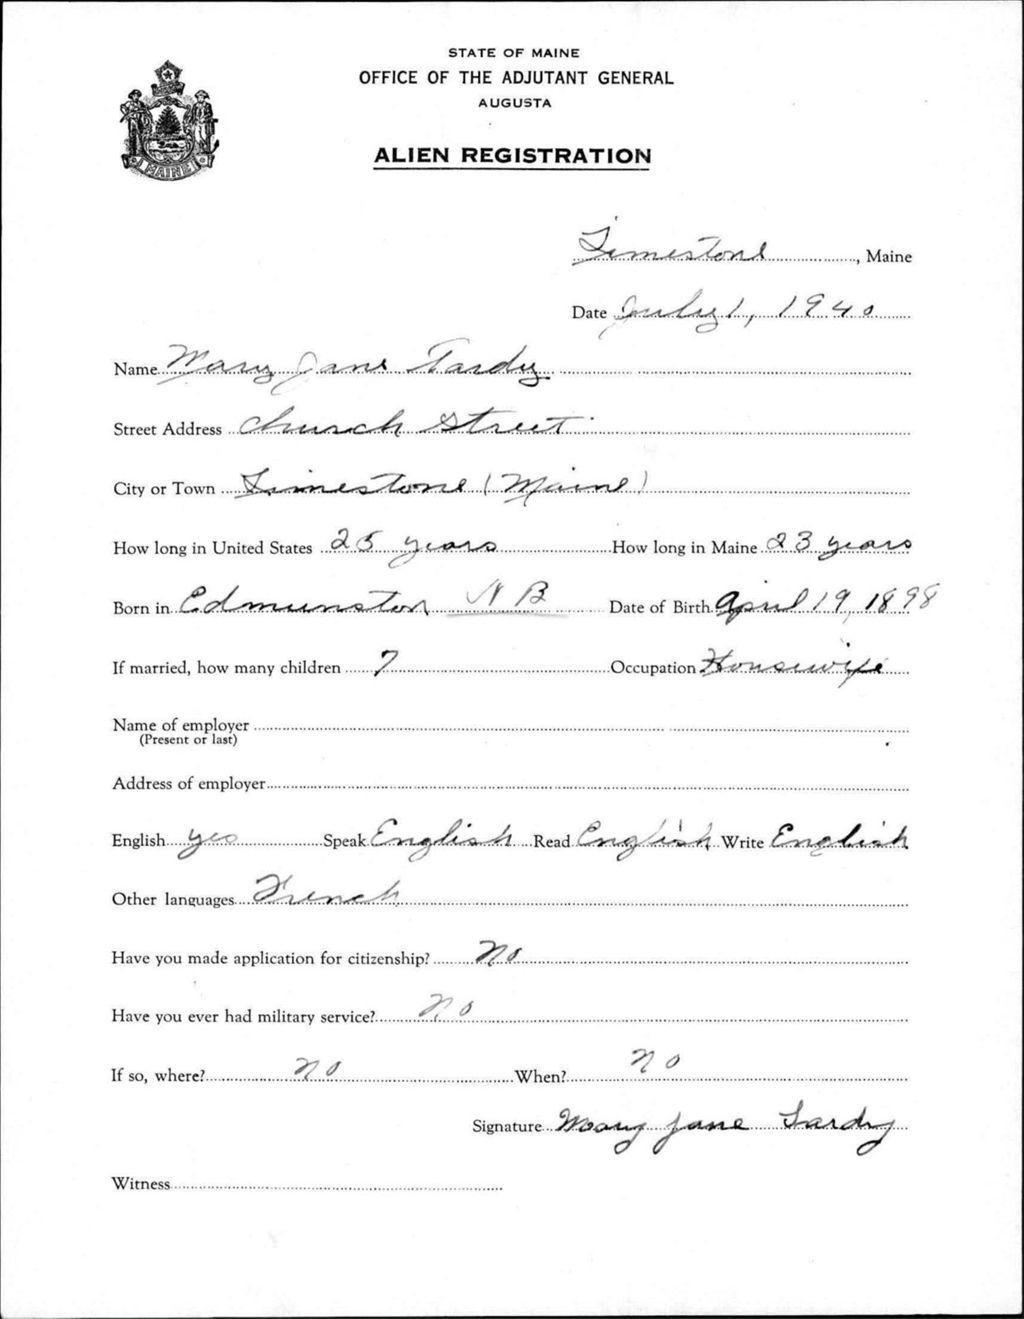 STATE OF MAINE
OFFICE OF THE ADJUTANT GENERAL
AUGUSTA
ALIEN REGISTRATION
MAINE
Limestone, Maine
Date July 1, 1940
Name Mary Jane Tardy
Street Address Church Street
City or Town Limestone (Maine)
How long in United States 25 years How long in Maine 23 years
Born in Edmunston N B Date of Birth April 19, 1898
If married, how many children 7 Occupation Housewife
Name of employer
(Present or last)
Address of employer
English yes Speak English Read English Write English
Other languages French
Have you made application for citizenship? No
Have you ever had military service? No
If so, where? No When? No
Signature Mary Jane Tardy
Witness